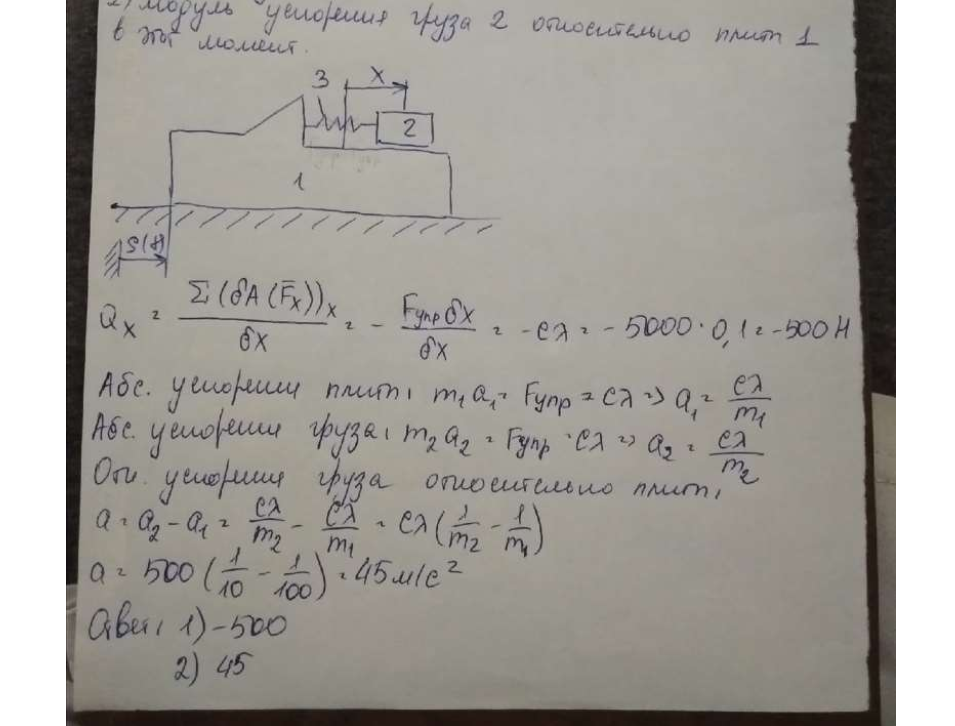 2) Модуль ускорения груза 2 относительно плиты 1
в этот момент.
3 X
2
1
S(t)
Qx = Σ(δA(F̄x))x / δx = - Fупр δx / δx = -cλ = -5000·0,1 = -500 Н
Абс. ускорения плиты: m₁a₁ = Fупр = cλ => a₁ = cλ/m₁
Абс. ускорения груза: m₂a₂ = Fупр = cλ => a₂ = cλ/m₂
Отн. ускорения груза относительно плиты:
a = a₂ - a₁ = cλ/m₂ - cλ/m₁ = cλ(1/m₂ - 1/m₁)
a = 500 (1/10 - 1/100) = 45 м/с²
Ответ: 1) -500
2) 45